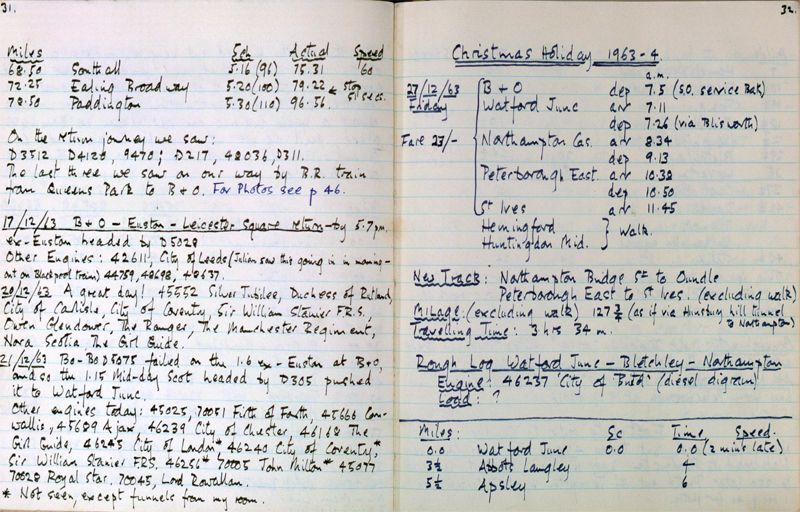 31.
Miles Sch Actual Speed
68.50 Southall 5.16 (96) 75.31 60
72.25 Ealing Broadway 5.20 (100) 79.22 ← stop
78.50 Paddington 5.30 (110) 96.56 51 secs.
On the return journey we saw:
D3512, D4128, 9470; D217, 48036, D311.
The last three we saw on our way by B.R. train
from Queens Park to B+O. For Photos see p 46.
17/12/63 B+O – Euston – Leicester Square return – by 5.7pm.
ex-Euston headed by D5028
Other Engines: 42611, City of Leeds (Julian saw this going in in morning-
out on Blackpool train) 44759, 48698, 48637.
20/12/63 A great day! 45552 Silver Jubilee, Duchess of Rutland,
City of Carlisle, City of Coventry, Sir William Stanier F.R.S,
Owen Glendower, The Ranger, The Manchester Regiment,
Nova Scotia, The Girl Guide.
21/12/63 Bo-Bo D5075 failed on the 1.6 ex-Euston at B+O,
and so the 1.15 Mid-day Scot headed by D305 pushed
it to Watford Junc.
Other engines today: 45025, 70051 Firth of Forth, 45666 Corn-
wallis, 45689 Ajax, 46239 City of Chester, 46168 The
Girl Guide, 46245 City of London* 46240 City of Coventry,*
Sir William Stanier FRS, 46256* 70005 John Milton* 45077
70028 Royal Star, 70045, Lord Rowallan.
* Not seen, except funnels from my room.
32.
Christmas Holiday 1963-4.
a.m.
27/12/63 B+O dep 7.5 (S.O. service Bak)
Friday Watford Junc arr 7.11
dep 7.26 (via Blisworth)
Fare 23/- Northampton Cas. arr 8.34
dep 9.13
Peterborough East. arr 10.38
dep 10.50
St Ives arr 11.45
Hemingford } Walk.
Huntingdon Mid.
New Track: Northampton Bridge St to Oundle
Peterborough East to St Ives. (excluding walk)
Milage: (excluding walk) 127 3/4 (as if via Hunsbury hill tunnel
to Northampton)
Travelling Time: 3 hrs 34 m.
Rough Log Watford Junc – Bletchley – Northampton
Engine: 46237 'City of Bristol' (diesel digram)
Load: ?
Miles: Sc Time Speed.
0.0 Watford Junc 0.0 0.0 (2 mins late)
3½ Abbots Langley 4
5½ Apsley 6